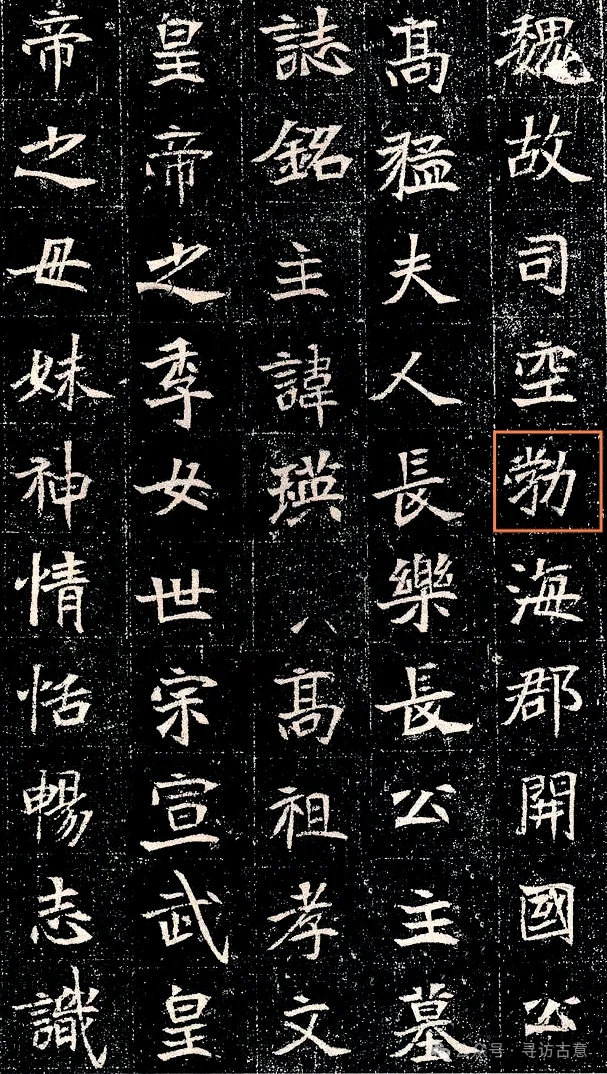 魏故司空勃海郡開國公
髙猛夫人長樂長公主墓
誌銘主諱瑛髙祖孝文
皇帝之季女世宗宣武皇
帝之母妹神情恬暢志識
寻访古意